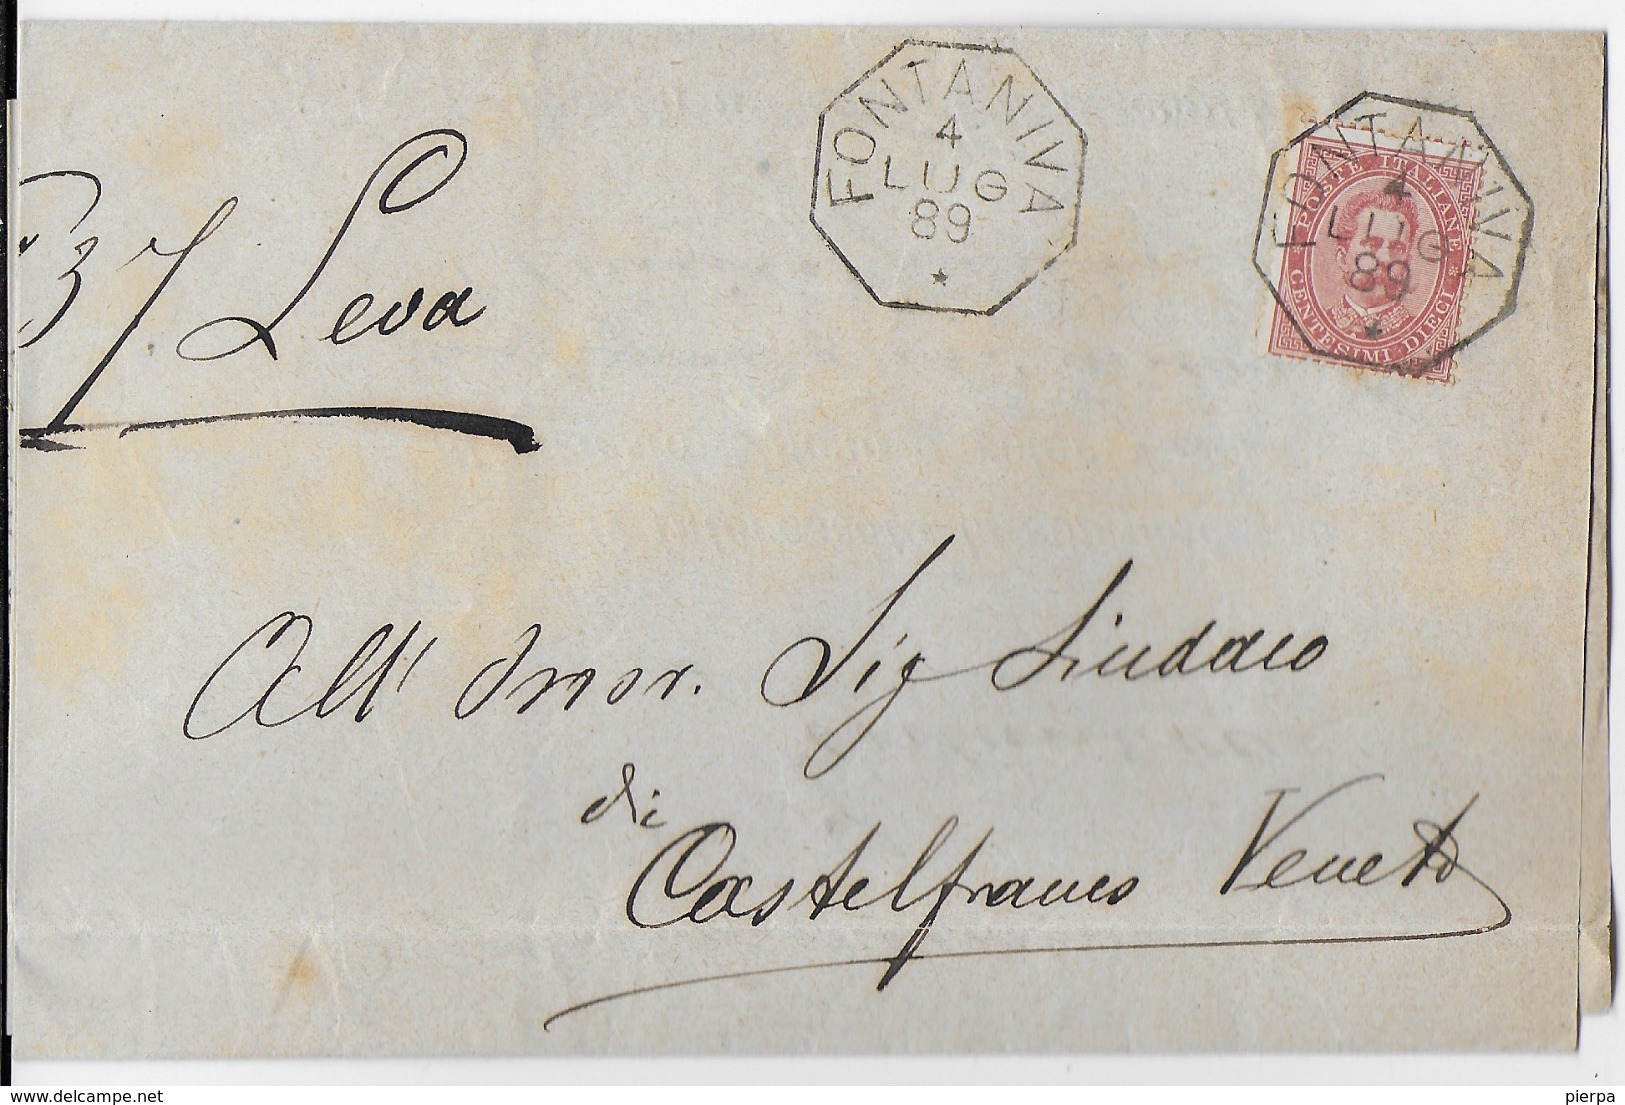 FONTANIVA
4
LUG
89
FONTANIVA
4
LUG
89
POSTE ITALIANE
CENTESIMI DIECI
Leva
All' Onor. Sig Sindaco
di
Castelfranco Veneto
delcampe.net
pierpa